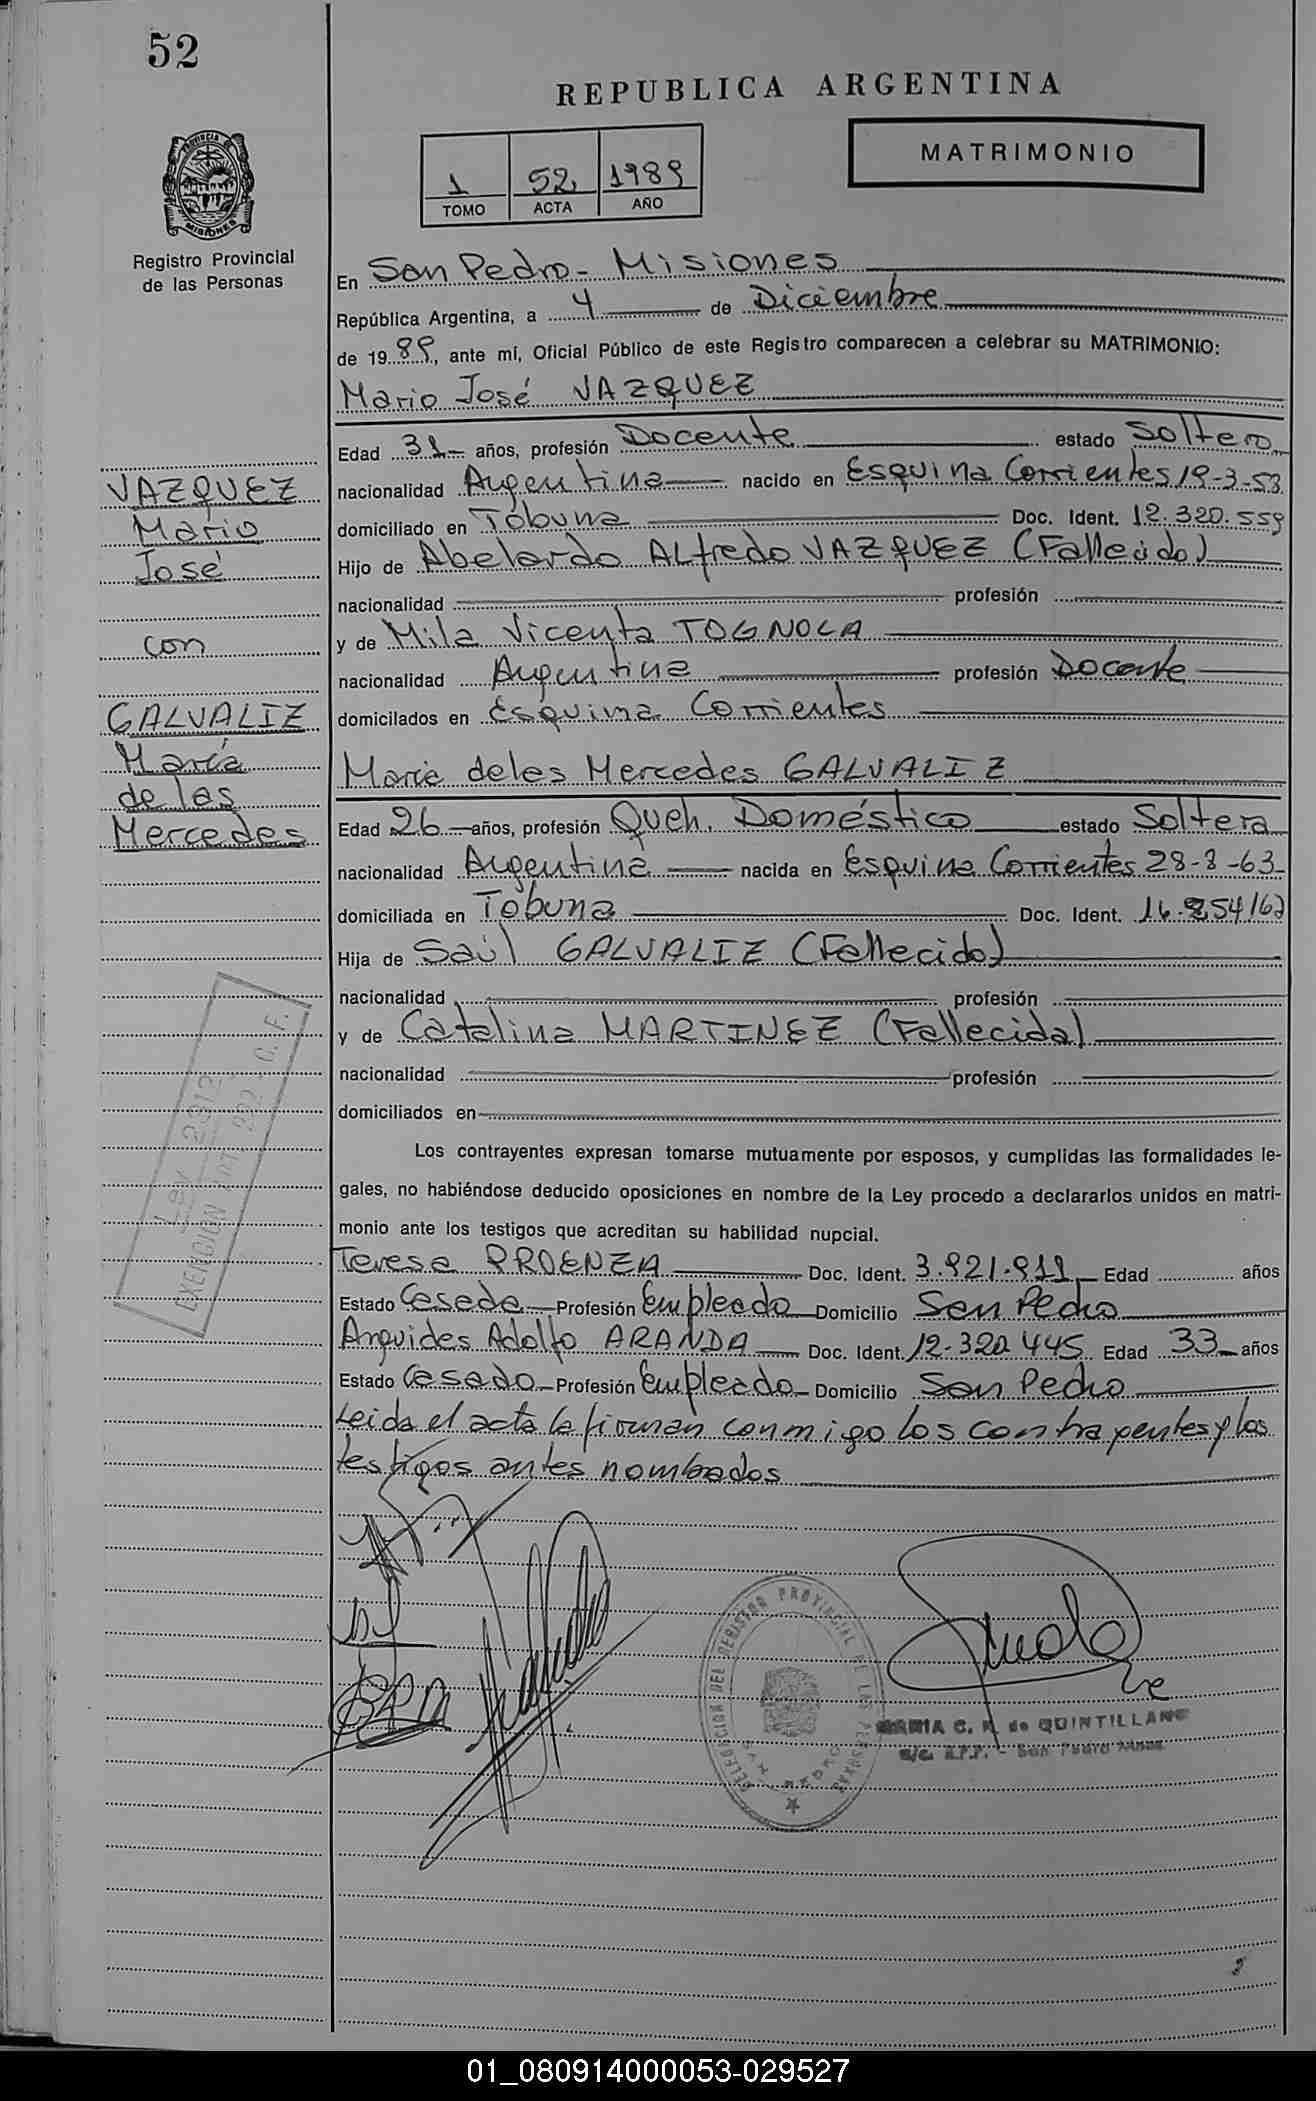 52
REPUBLICA ARGENTINA
MATRIMONIO
1 52 1989
TOMO ACTA AÑO
PROVINCIA DE MISIONES
Registro Provincial
de las Personas
En San Pedro - Misiones
República Argentina, a 4 de Diciembre
de 1989, ante mí, Oficial Público de este Registro comparecen a celebrar su MATRIMONIO:
Mario José VAZQUEZ
Edad 31 años, profesión Docente estado Soltero
nacionalidad Argentina nacido en Esquina Corrientes 19-3-58
domiciliado en Tobuna Doc. Ident. 12.320.559
Hijo de Abelardo ALfredo VAZQUEZ (Fallecido)
nacionalidad profesión
y de Mila Vicenta TOGNOLA
nacionalidad Argentina profesión Docente
domicilados en Esquina Corrientes
VAZQUEZ
Mario
José
con
GALVALIZ
María
de las
Mercedes
Maria delas Mercedes GALVALIZ
Edad 26 años, profesión Queh. Doméstico estado Soltera
nacionalidad Argentina nacida en Esquina Corrientes 28-8-63
domiciliada en Tobuna Doc. Ident.
Hija de Saúl GALVALIZ (Fallecido)
nacionalidad profesión
y de Catalina MARTINEZ (Fallecida)
nacionalidad profesión
domiciliados en
Los contrayentes expresan tomarse mutuamente por esposos, y cumplidas las formalidades le-
gales, no habiéndose deducido oposiciones en nombre de la Ley procedo a declararlos unidos en matri-
monio ante los testigos que acreditan su habilidad nupcial.
Teresa PROENZA Doc. Ident. 3.921.911 Edad años
Estado Casada Profesión Empleada Domicilio San Pedro
Arquides Adolfo ARANDA Doc. Ident. 12.320.445 Edad 33 años
Estado Casado Profesión Empleado Domicilio San Pedro
Leida el acta la firman conmigo los contrayentes y los
testigos antes nombados
Ley 2912
EXENCION
DELEGACION DEL REGISTRO PROVINCIAL DE LAS PERSONAS
SAN PEDRO
MARIA C. R. de QUINTILLANO
R.P.P. - San Pedro Mnes.
01_080914000053-029527